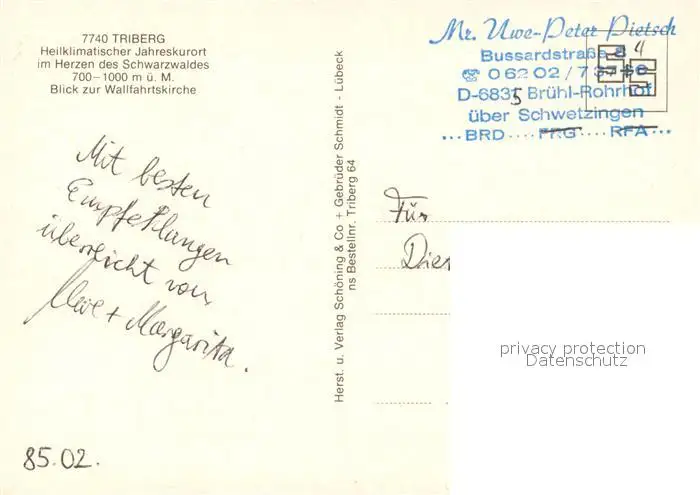 7740 TRIBERG
Heilklimatischer Jahreskurort
im Herzen des Schwarzwaldes
700–1000 m ü. M.
Blick zur Wallfahrtskirche
Mit besten
Empfehlungen
überreicht von
Uwe + Margarita.
85.02.
Herst. u. Verlag Schöning & Co + Gebrüder Schmidt - Lübeck
ns Bestellnr. Triberg 64
Mr. Uwe-Peter Pietsch
Bussardstraße 4
☎ 06202/7
D-6835 Brühl-Rohrhof
über Schwetzingen
...BRD....FRG....RFA...
Für
privacy protection
Datenschutz